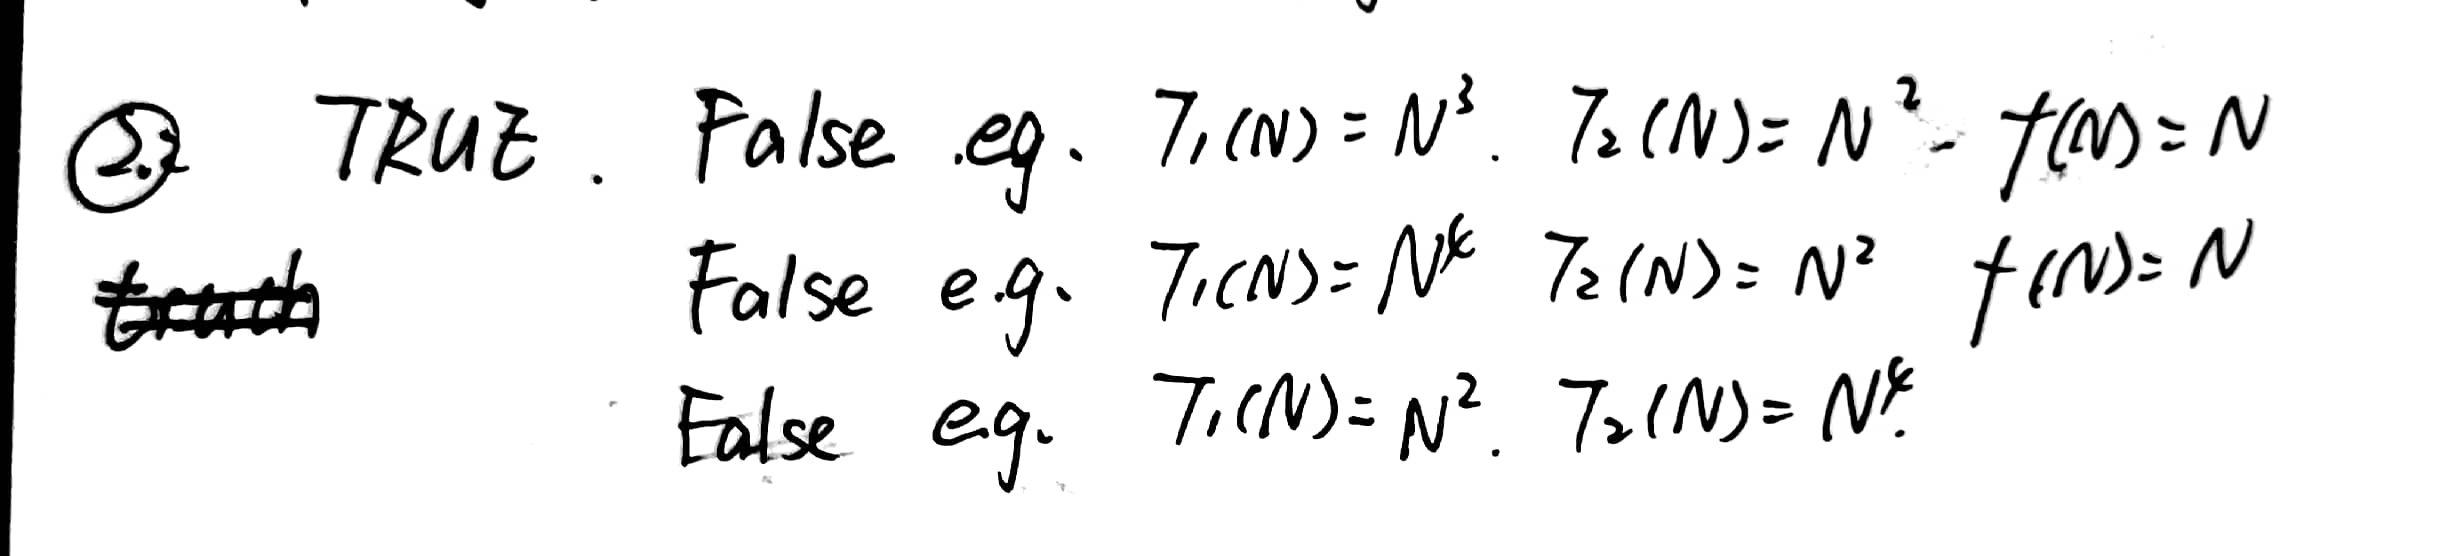 2.2 TRUE. False .eg. T₁(N) = N³. T₂(N) = N² - f(N) = N
False e.g. T₁(N) = N⁴ T₂(N) = N² f(N) = N
False e.g. T₁(N) = N². T₂(N) = N⁴.